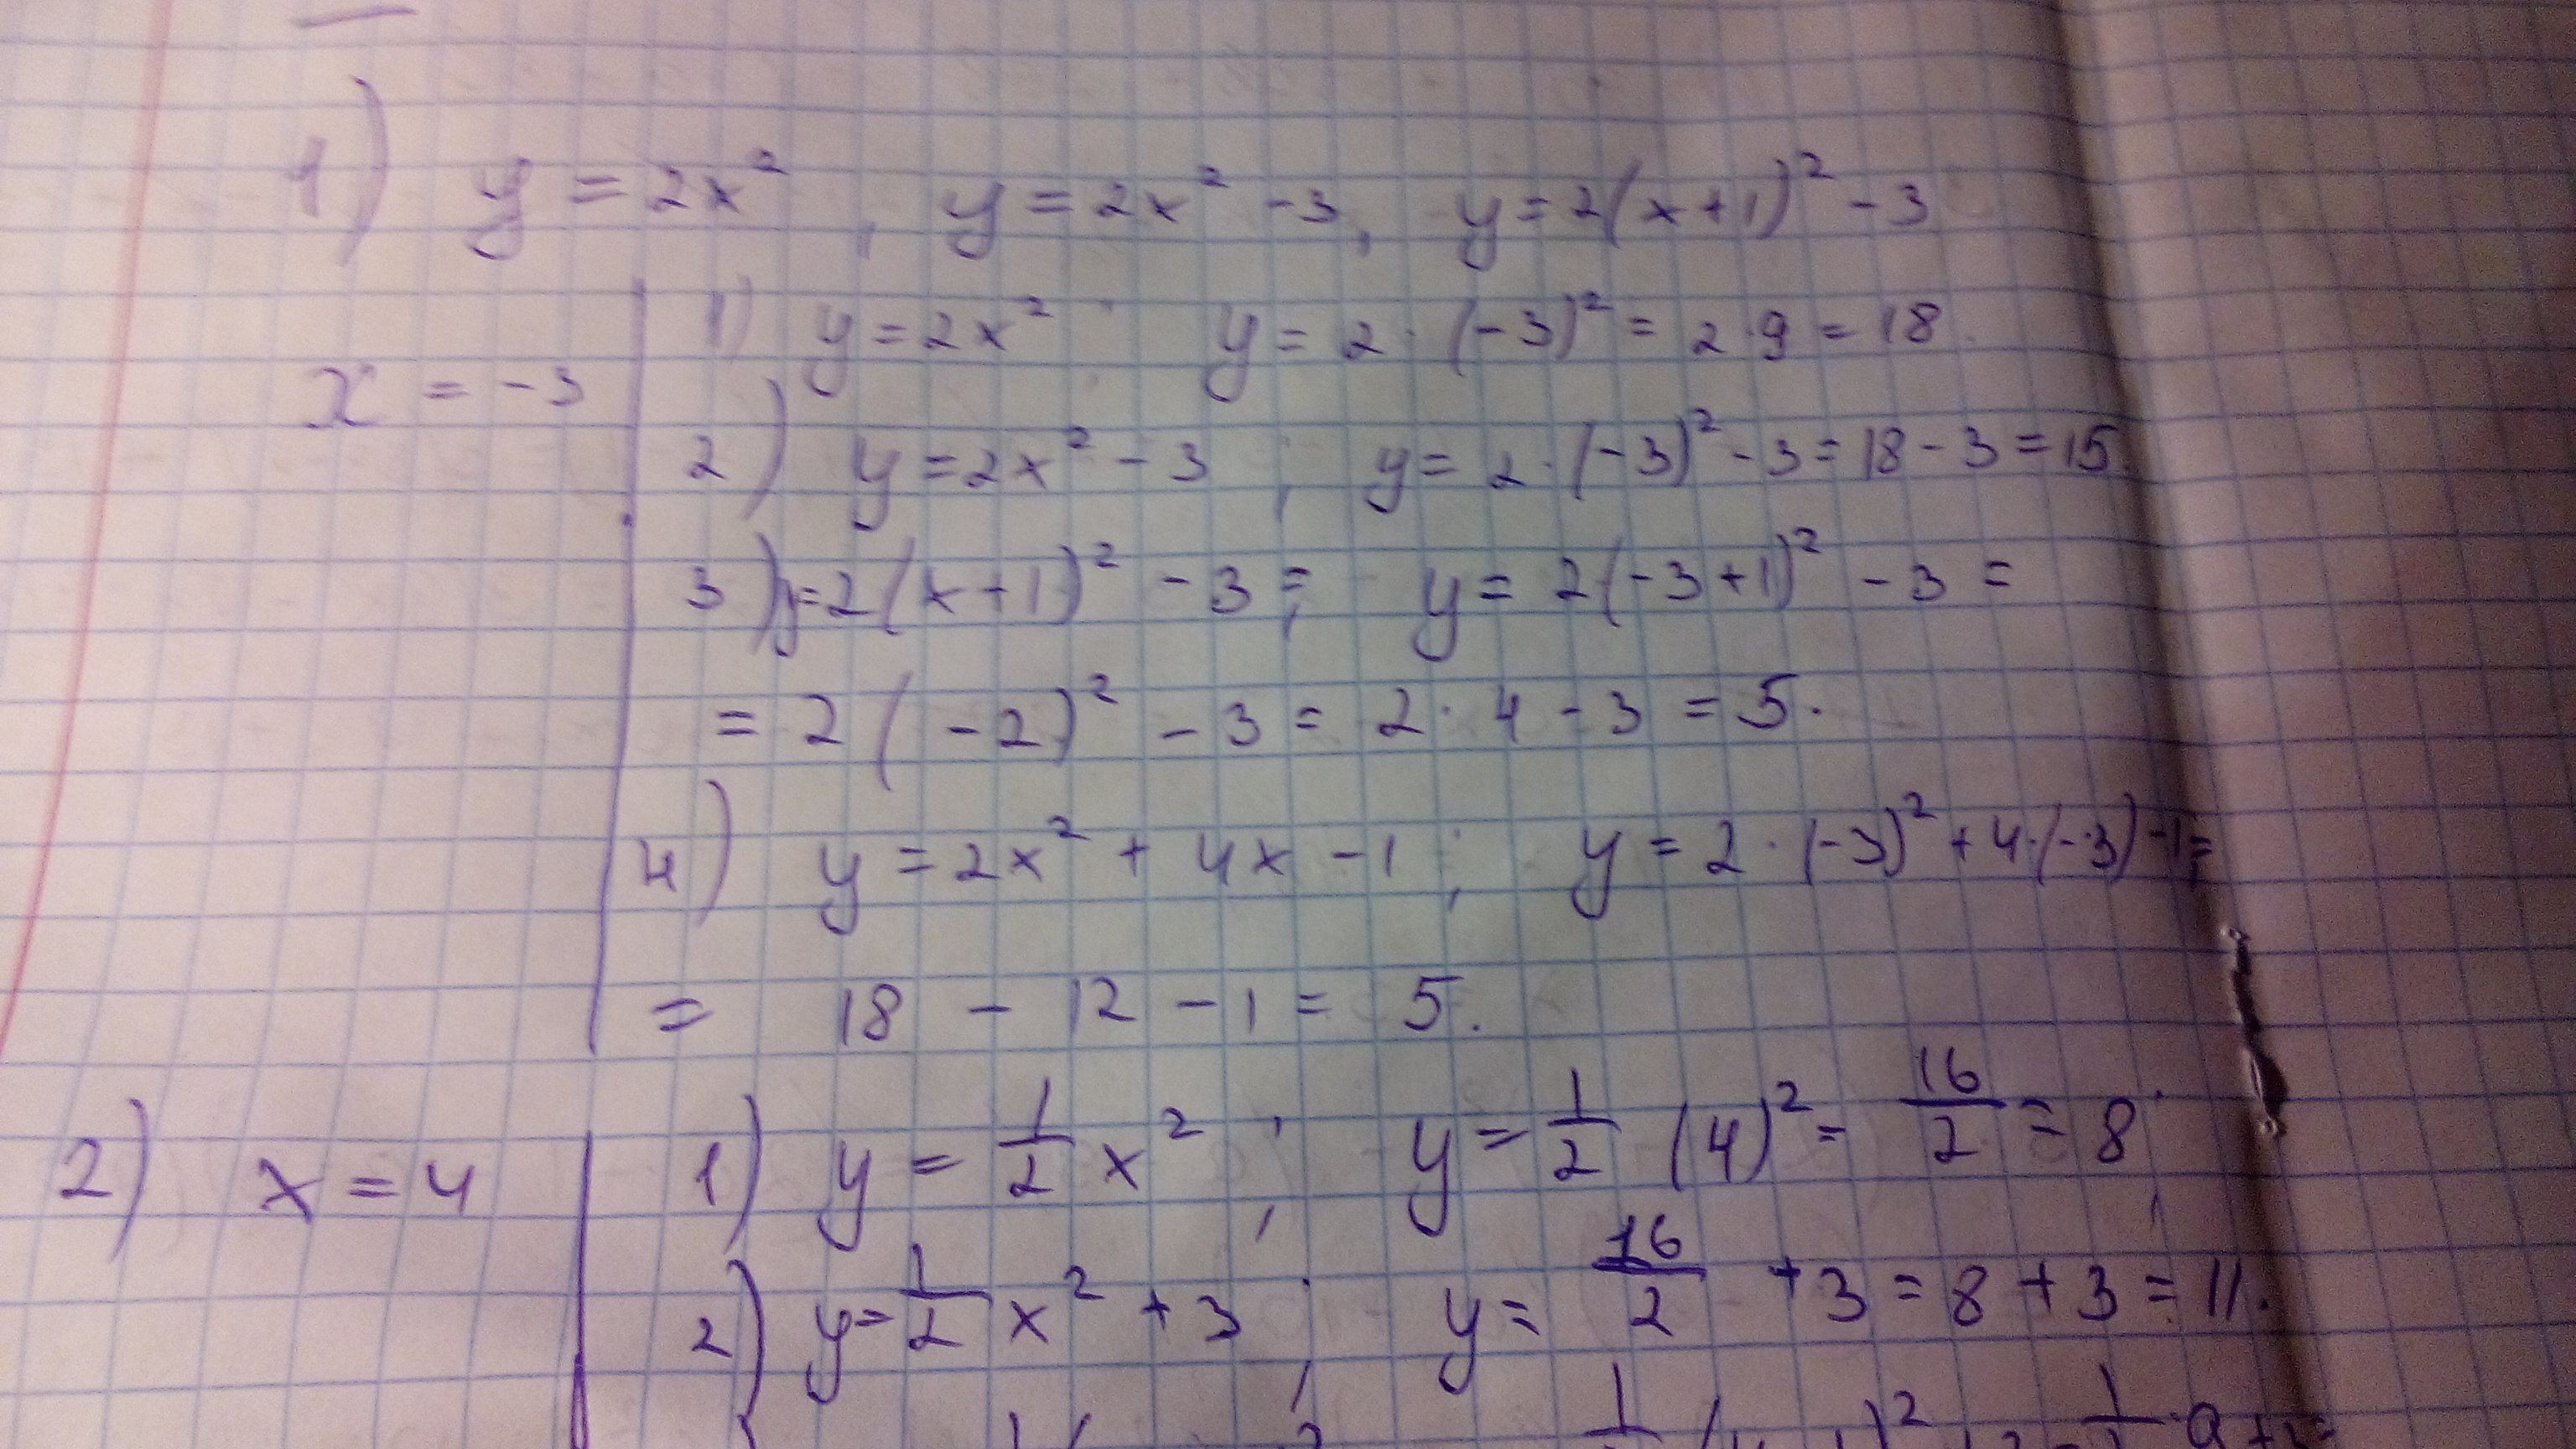 1) y = 2x² , y = 2x² - 3, y = 2(x+1)² - 3
1) y = 2x² ; y = 2·(-3)² = 2·9 = 18.
x = -3
2) y = 2x² - 3 ; y = 2·(-3)² - 3 = 18 - 3 = 15.
3) y = 2(x+1)² - 3 ; y = 2(-3+1)² - 3 =
= 2(-2)² - 3 = 2·4 - 3 = 5.
4) y = 2x² + 4x - 1 ; y = 2·(-3)² + 4·(-3) - 1 =
= 18 - 12 - 1 = 5.
2) x = 4 1) y = 1/2 x² ; y = 1/2 (4)² = 16/2 = 8 ;
2) y = 1/2 x² + 3 ; y = 16/2 + 3 = 8 + 3 = 11.